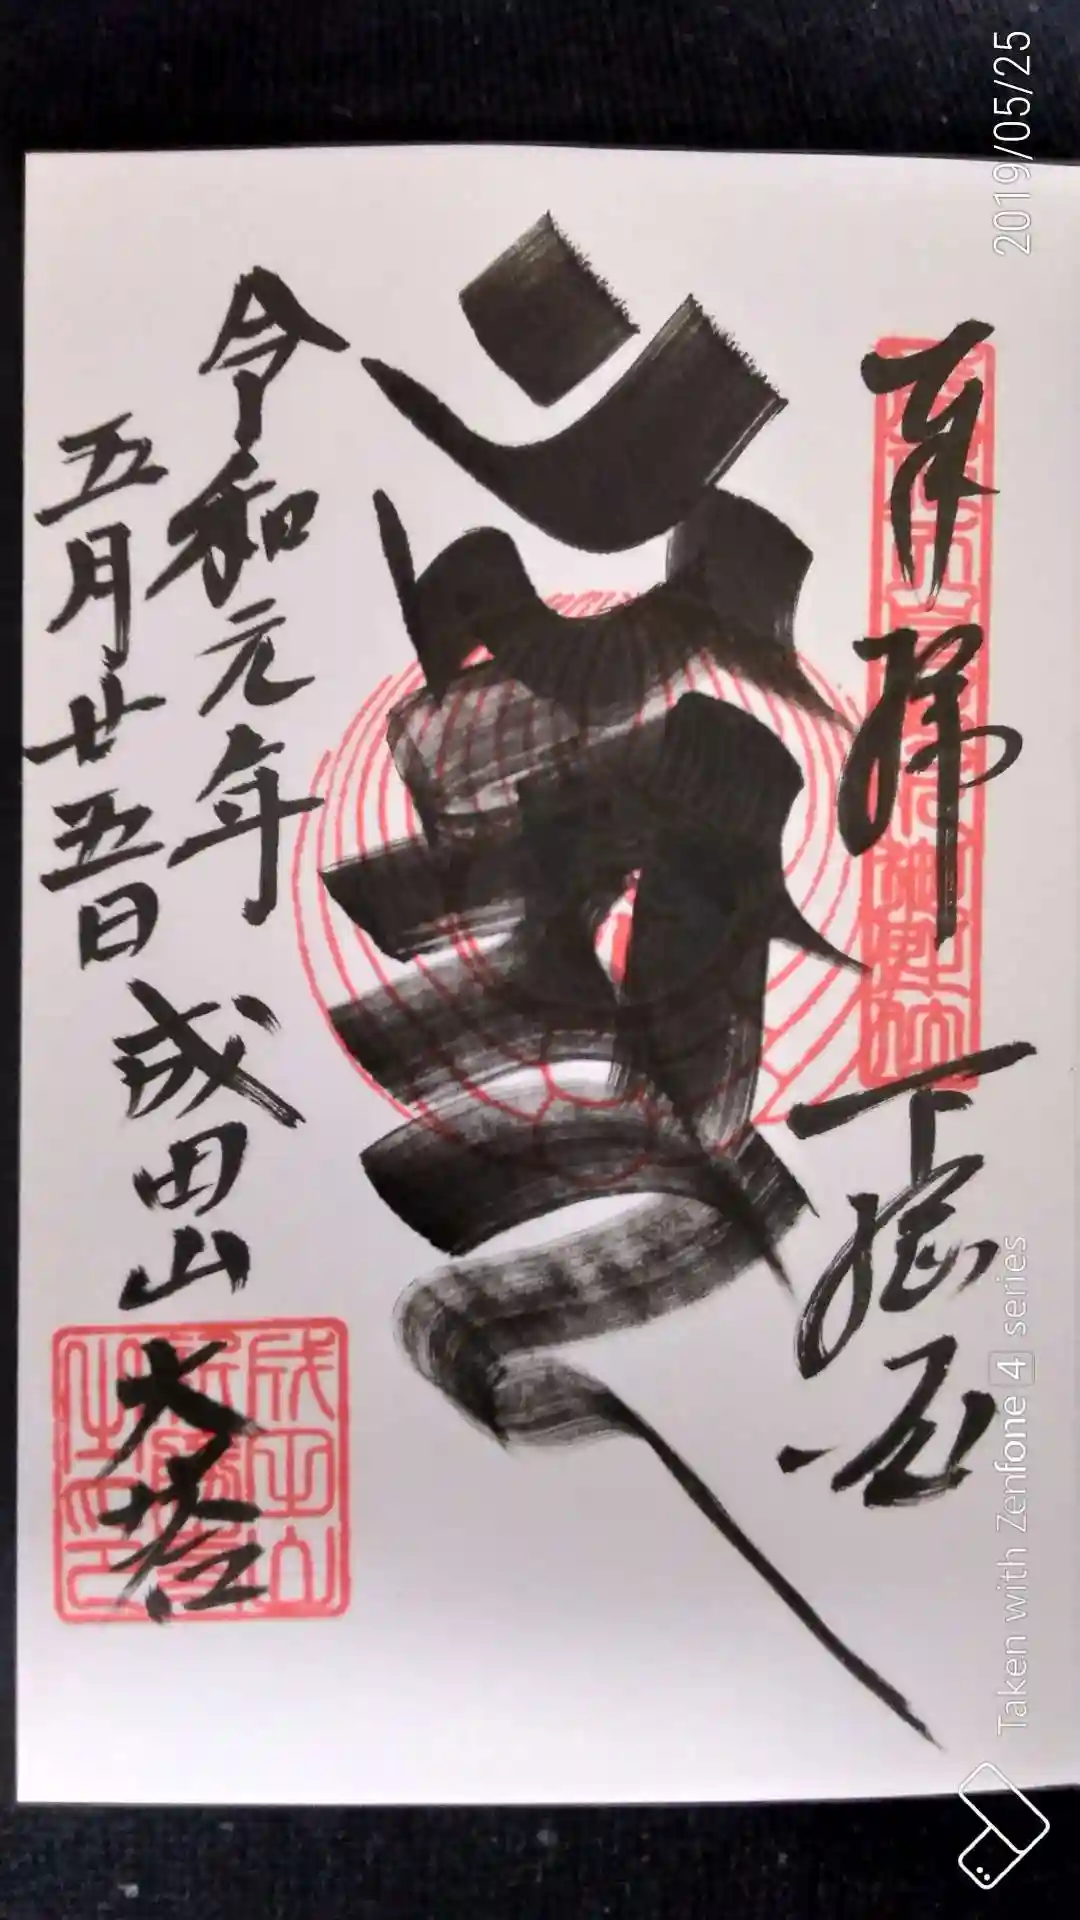 奉拝
下総国
令和元年
五月廿五日
成田山
大塔
成田山
2019/05/25
Taken with Zenfone 4 series